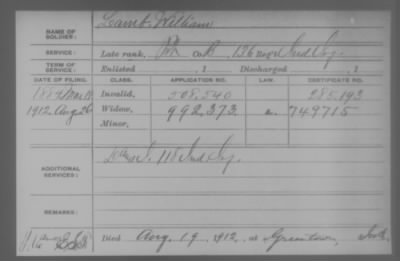 NAME OF SOLDIER: Lamb, William
SERVICE: Late rank, Co. 136 Reg't Ind Inf.
TERM OF SERVICE: Enlisted , 1 Discharged , 1
DATE OF FILING. CLASS. APPLICATION NO. LAW. CERTIFICATE NO.
1884 Invalid, 508,540 285,193
1912, Aug 26 Widow, 992,373 749715
Minor,
ADDITIONAL SERVICES: 118 Ind Inf.
REMARKS:
Died Aug. 19, 1912, at Greentown, Ind.